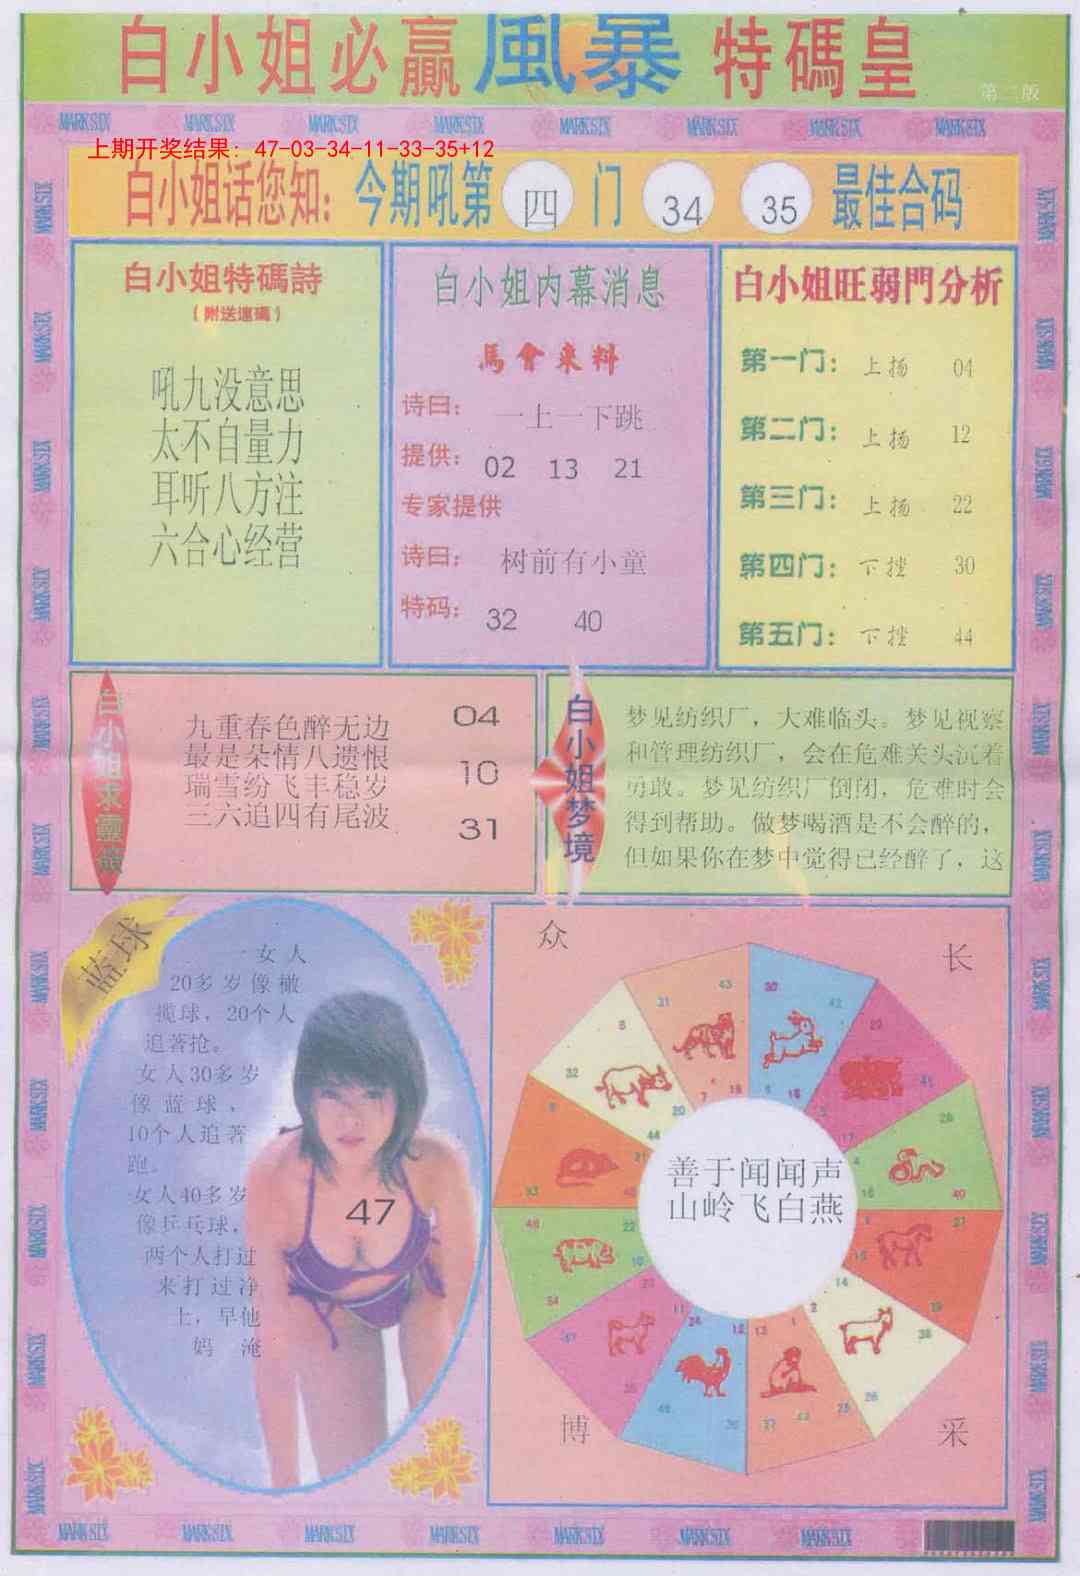 白小姐必贏風暴特碼皇
第二版
MARKSIX MARKSIX MARKSIX MARKSIX MARKSIX MARKSIX MARKSIX MARKSIX
上期开奖结果：47-03-34-11-33-35+12
白小姐话您知：今期吼第四门 34 35 最佳合码
白小姐特碼詩
(附送連碼)
吼九没意思
太不自量力
耳听八方注
六合心经营
白小姐内幕消息
馬會来料
诗曰：一上一下跳
提供：02 13 21
专家提供
诗曰：树前有小童
特码：32 40
白小姐旺弱門分析
第一门：上扬 04
第二门：上扬 12
第三门：上扬 22
第四门：下挫 30
第五门：下挫 44
白小姐求靈籤
九重春色醉无边
最是朵情八遗恨
瑞雪纷飞丰稳岁
三六追四有尾波
04
10
31
白小姐梦境
梦见纺织厂，大难临头。梦见视察
和管理纺织厂，会在危难关头沉着
勇敢。梦见纺织厂倒闭，危难时会
得到帮助。做梦喝酒是不会醉的，
但如果你在梦中觉得已经醉了，这
蓝球
一女人
20多岁像橄
揽球，20个人
追著抢。
女人30多岁
像蓝球，
10个人追著
跑。
女人40多岁
像乒乓球，
两个人打过
来打过净
上，早他
妈 淹
47
众
长
善于闻闻声
山岭飞白燕
博
采
MARKSIX MARKSIX MARKSIX MARKSIX MARKSIX MARKSIX MARKSIX